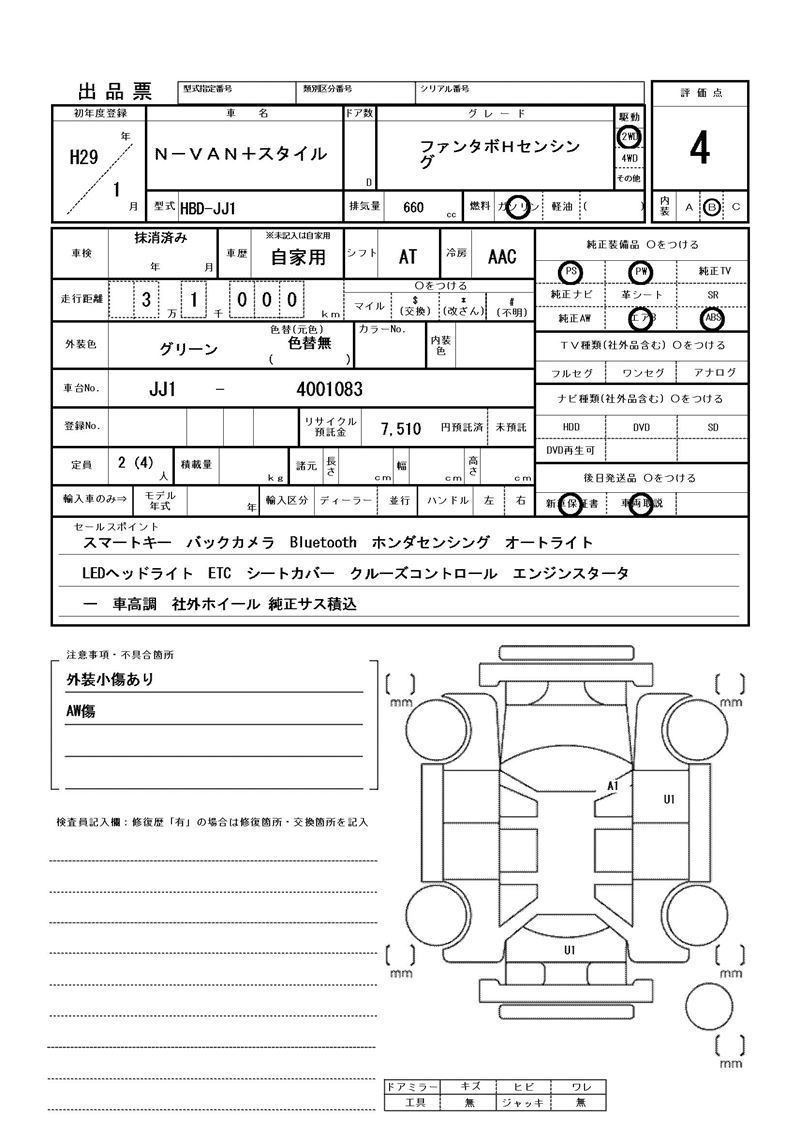 出品票
型式指定番号 類別区分番号 シリアル番号
評価点
4
内装 A B C
初年度登録 車名 ドア数 グレード 駆動
H29 年 1 月
N－VAN＋スタイル
D
ファンタボHセンシン
グ
2WD
4WD
その他
型式 HBD-JJ1 排気量 660 cc 燃料 ガソリン 軽油 ( )
車検 抹消済み 年 月 車歴 ※未記入は自家用 自家用 シフト AT 冷房 AAC
走行距離 3 1 万 千 0 0 0 km
〇をつける
マイル $(交換) *(改ざん) #(不明)
外装色 グリーン 色替(元色) 色替無 ( ) カラーNo. 内装色
車台No. JJ1 － 4001083
登録No. リサイクル預託金 7,510 円預託済 未預託
定員 2 (4) 人 積載量 kg 諸元 長さ cm 幅 cm 高さ cm
輸入車のみ⇒ モデル年式 年 輸入区分 ディーラー 並行 ハンドル 左 右
純正装備品 〇をつける
PS PW 純正TV
純正ナビ 革シート SR
純正AW エアB ABS
TV種類(社外品含む) 〇をつける
フルセグ ワンセグ アナログ
ナビ種類(社外品含む) 〇をつける
HDD DVD SD
DVD再生可
後日発送品 〇をつける
新車保証書 車両取説
セールスポイント
スマートキー バックカメラ Bluetooth ホンダセンシング オートライト
LEDヘッドライト ETC シートカバー クルーズコントロール エンジンスタータ
ー 車高調 社外ホイール 純正サス積込
注意事項・不具合箇所
外装小傷あり
AW傷
検査員記入欄：修復歴「有」の場合は修復箇所・交換箇所を記入
mm
mm
A1
U1
U1
mm
mm
mm
ドアミラー キズ ヒビ ワレ
工具 無 ジャッキ 無